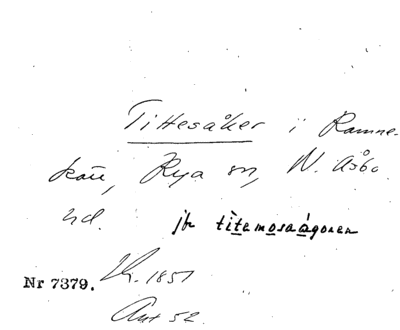 Tittesåker i Ramne-
kärr, Rya sn, N. Åsbo
hd. jfr titemosaågoren
Nr 7379. 1851
Ant 52.